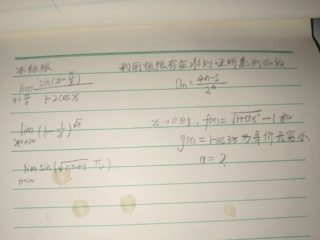 求极限
lim x→π/3 sin(x-π/3)/(1-2cosx)
lim x→+∞ (1-1/x)^√x
lim n→∞ sin(√(n²+1) π)
利用极限存在准则证明数列收敛
x→0时, f(x)=√(1+ax²)-1和
g(x)=1-cos3x为等价无穷小
a=?